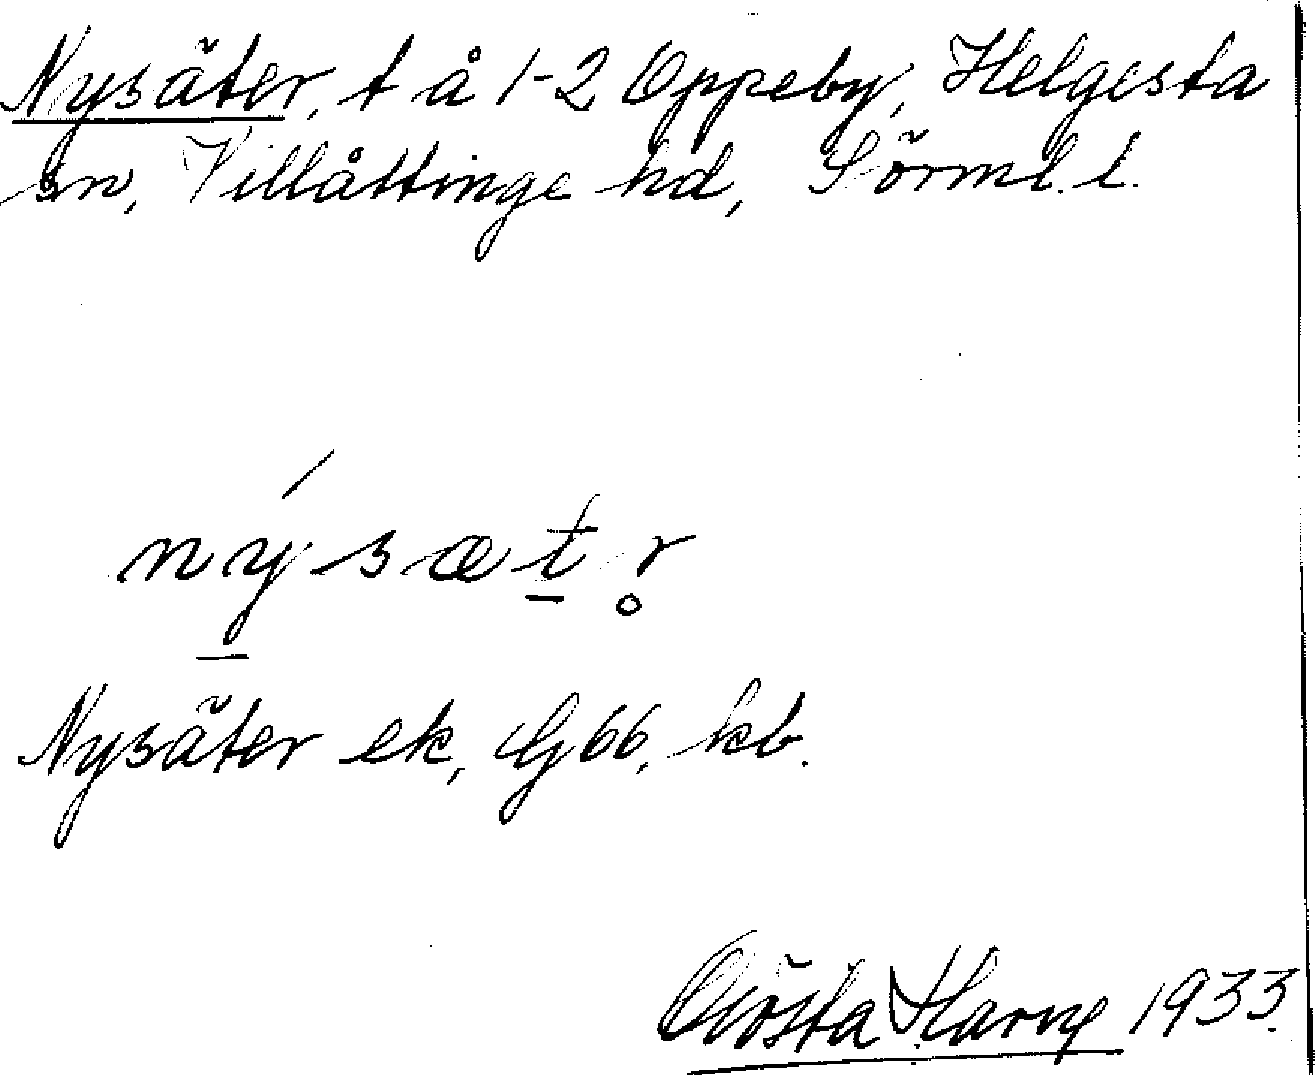 Nysäter, t å 1-2 Oppeby, Helgesta
sn, Villåttinge hd, Sörml. l.
nýsætr̥
Nysäter ek, G 66, kb.
Gösta 1933.